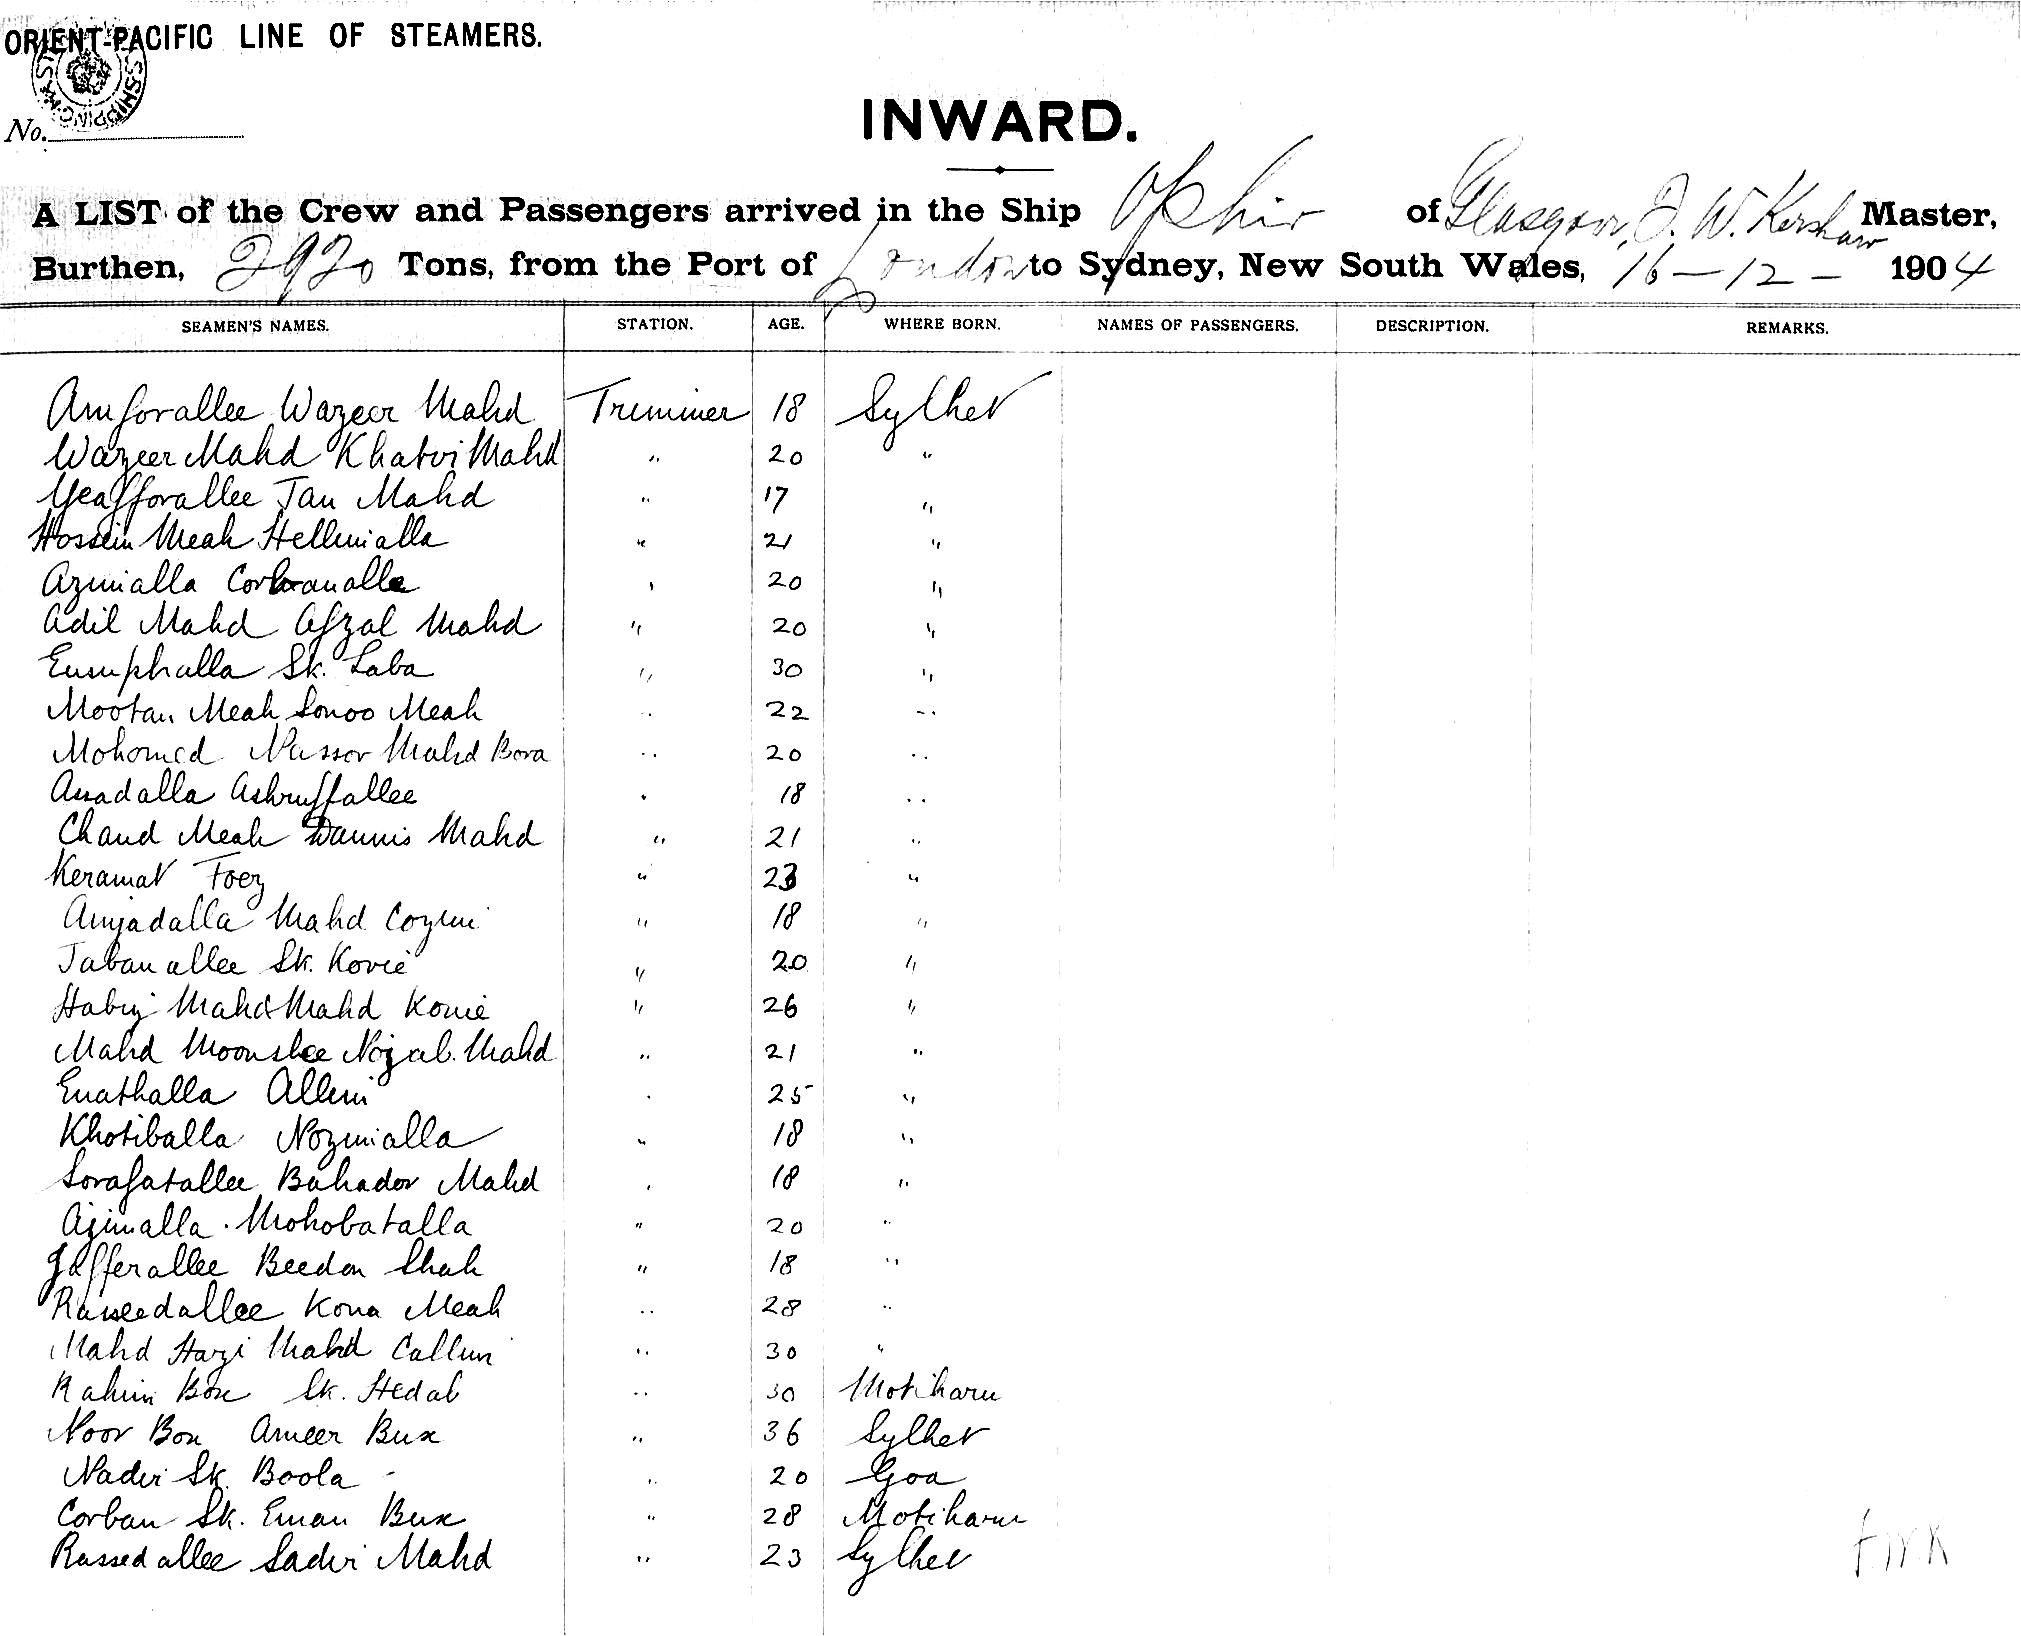 ORIENT-PACIFIC LINE OF STEAMERS.
No.
INWARD.
A LIST of the Crew and Passengers arrived in the Ship Ophir of Glasgow, J. W. Kershaw Master,
Burthen, 2920 Tons, from the Port of London to Sydney, New South Wales, 16 - 12 - 1904
SEAMEN'S NAMES. STATION. AGE. WHERE BORN. NAMES OF PASSENGERS. DESCRIPTION. REMARKS.
Amforallee Wazeer Mahd Trimmer 18 Sylhet
Wazeer Mahd Khatoi Mahd " 20 "
Yeafforallee Jan Mahd " 17 "
Hossein Meah Hellimalla " 21 "
Azimalla Corbanalla " 20 "
Adil Mahd Afzal Mahd " 20 "
Eusuphalla Sk. Laba " 30 "
Mootan Meah Sonoo Meah " 22 "
Mohomed Nassor Mahd Bora " 20 "
Assadalla Ashruffallee " 18 "
Chand Meah Dannis Mahd " 21 "
Keramat Foez " 23 "
Amjadalla Mahd Cozim " 18 "
Jabanallee Sk. Korie " 20 "
Habij Mahd Mahd Konie " 26 "
Mahd Moonshee Nojab. Mahd " 21 "
Enathalla Allim " 25 "
Khotiballa Nozimalla " 18 "
Sorafatallee Bahador Mahd " 18 "
Ajimalla Mohobatalla " 20 "
Jafferallee Beedon Shah " 18 "
Rasseedallee Kona Meah " 28 "
Mahd Hazi Mahd Callim " 30 "
Rahim Box Sk. Hedab " 30 Motiharu
Noor Box Ameer Bux " 36 Sylhet
Nadir Sk. Boola " 20 Goa
Corban Sk. Eman Bux " 28 Motiharu
Rassedallee Sadir Mahd " 23 Sylhet